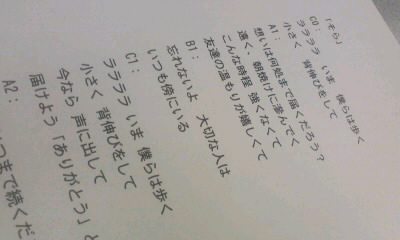 「そら」
C0:
ララララ いま 僕らは歩く
小さく 背伸びをして
A1:
想いは何処まで届くだろう?
遠く、朝焼けに滲んでく
こんな時程 強くなくて
友達の温もりが嬉しくて
B1:
忘れないよ 大切な人は
いつも傍にいる
C1:
ララララ いま 僕らは歩く
小さく 背伸びをして
今なら 声に出して
届けよう「ありがとう」と
A2:
つまで続くだ